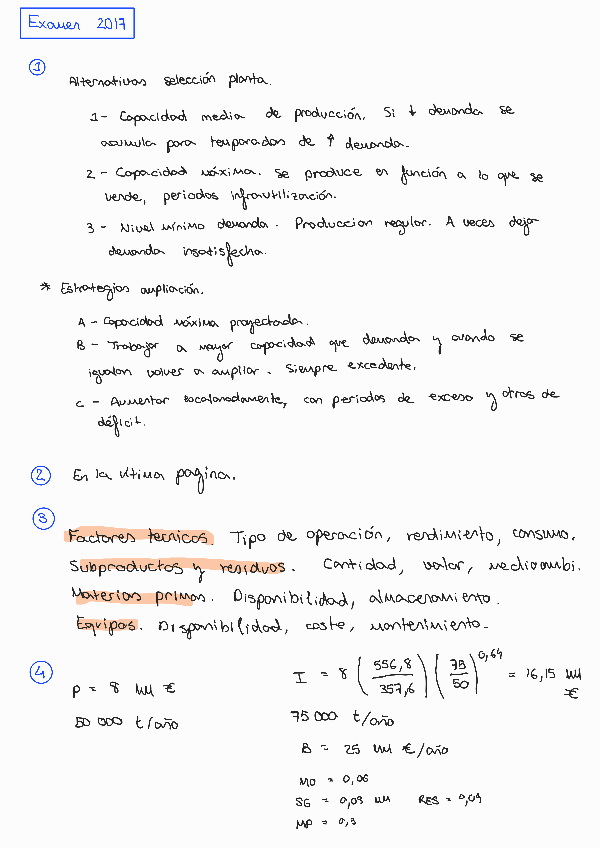 Examen 2017
①
Alternativas selección planta.
1- Capacidad media de producción. Si ↓ demanda se
acumula para temporadas de ↑ demanda.
2 - Capacidad máxima. Se produce en función a lo que se
vende, periodos infrautilización.
3 - Nivel mínimo demanda. Produccion regular. A veces deja
demanda insatisfecha.
* Estrategias ampliación.
A - Capacidad máxima proyectada.
B - Trabajar a mayor capacidad que demanda y cuando se
igualan volver a ampliar. Siempre excedente.
C - Aumentar escalonadamente, con periodos de exceso y otros de
déficit.
② En la última pagina.
③
Factores tecnicos. Tipo de operación, rendimiento, consumo.
Subproductos y residuos. Cantidad, valor, medioambi.
Materias primas. Disponibilidad, almacenamiento.
Equipos. Disponibilidad, coste, mantenimiento.
④
P = 8 MM €
50 000 t/año
I = 8 (556,8/357,6) (75/50)^0,64 = 16,15 MM €
75 000 t/año
B = 25 MM €/año
MO = 0,06
SG = 0,03 MM RES = 0,04
MP = 0,3